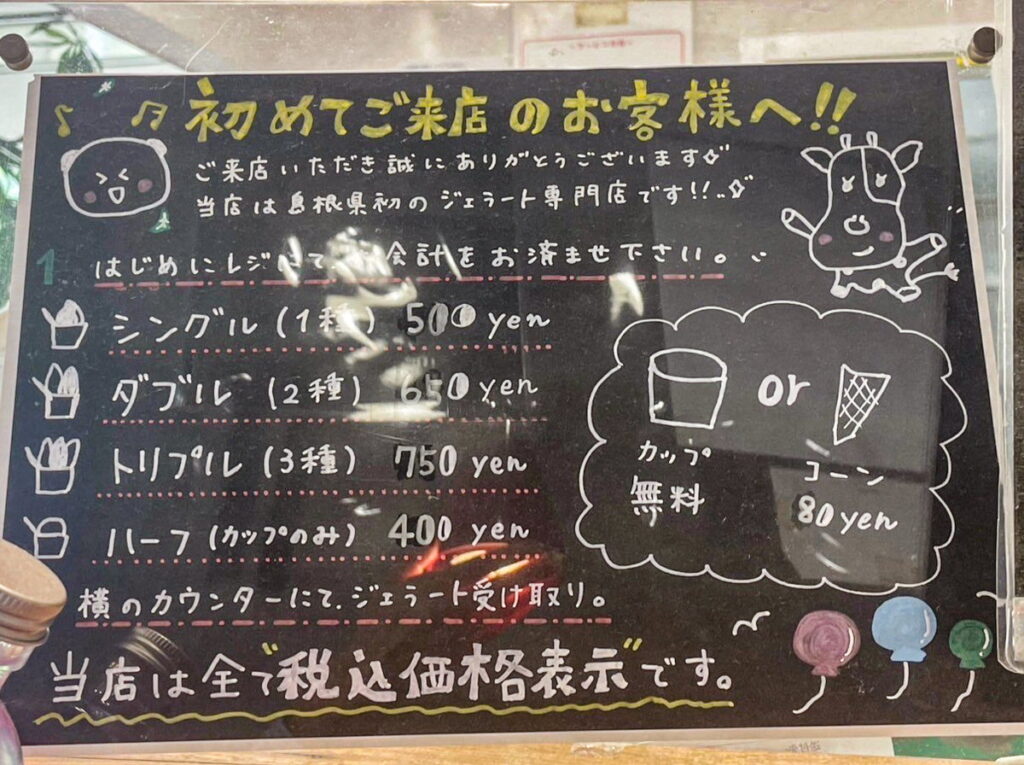 初めてご来店のお客様へ!!
ご来店いただき誠にありがとうございます
当店は島根県初のジェラート専門店です!!
1 はじめにレジにて 会計をお済ませ下さい。
シングル(1種) 500 yen
ダブル(2種) 650 yen
トリプル(3種) 750 yen
ハーフ(カップのみ) 400 yen
or
カップ
無料
コーン
80yen
横のカウンターにて、ジェラート受け取り。
当店は全て"税込価格表示"です。